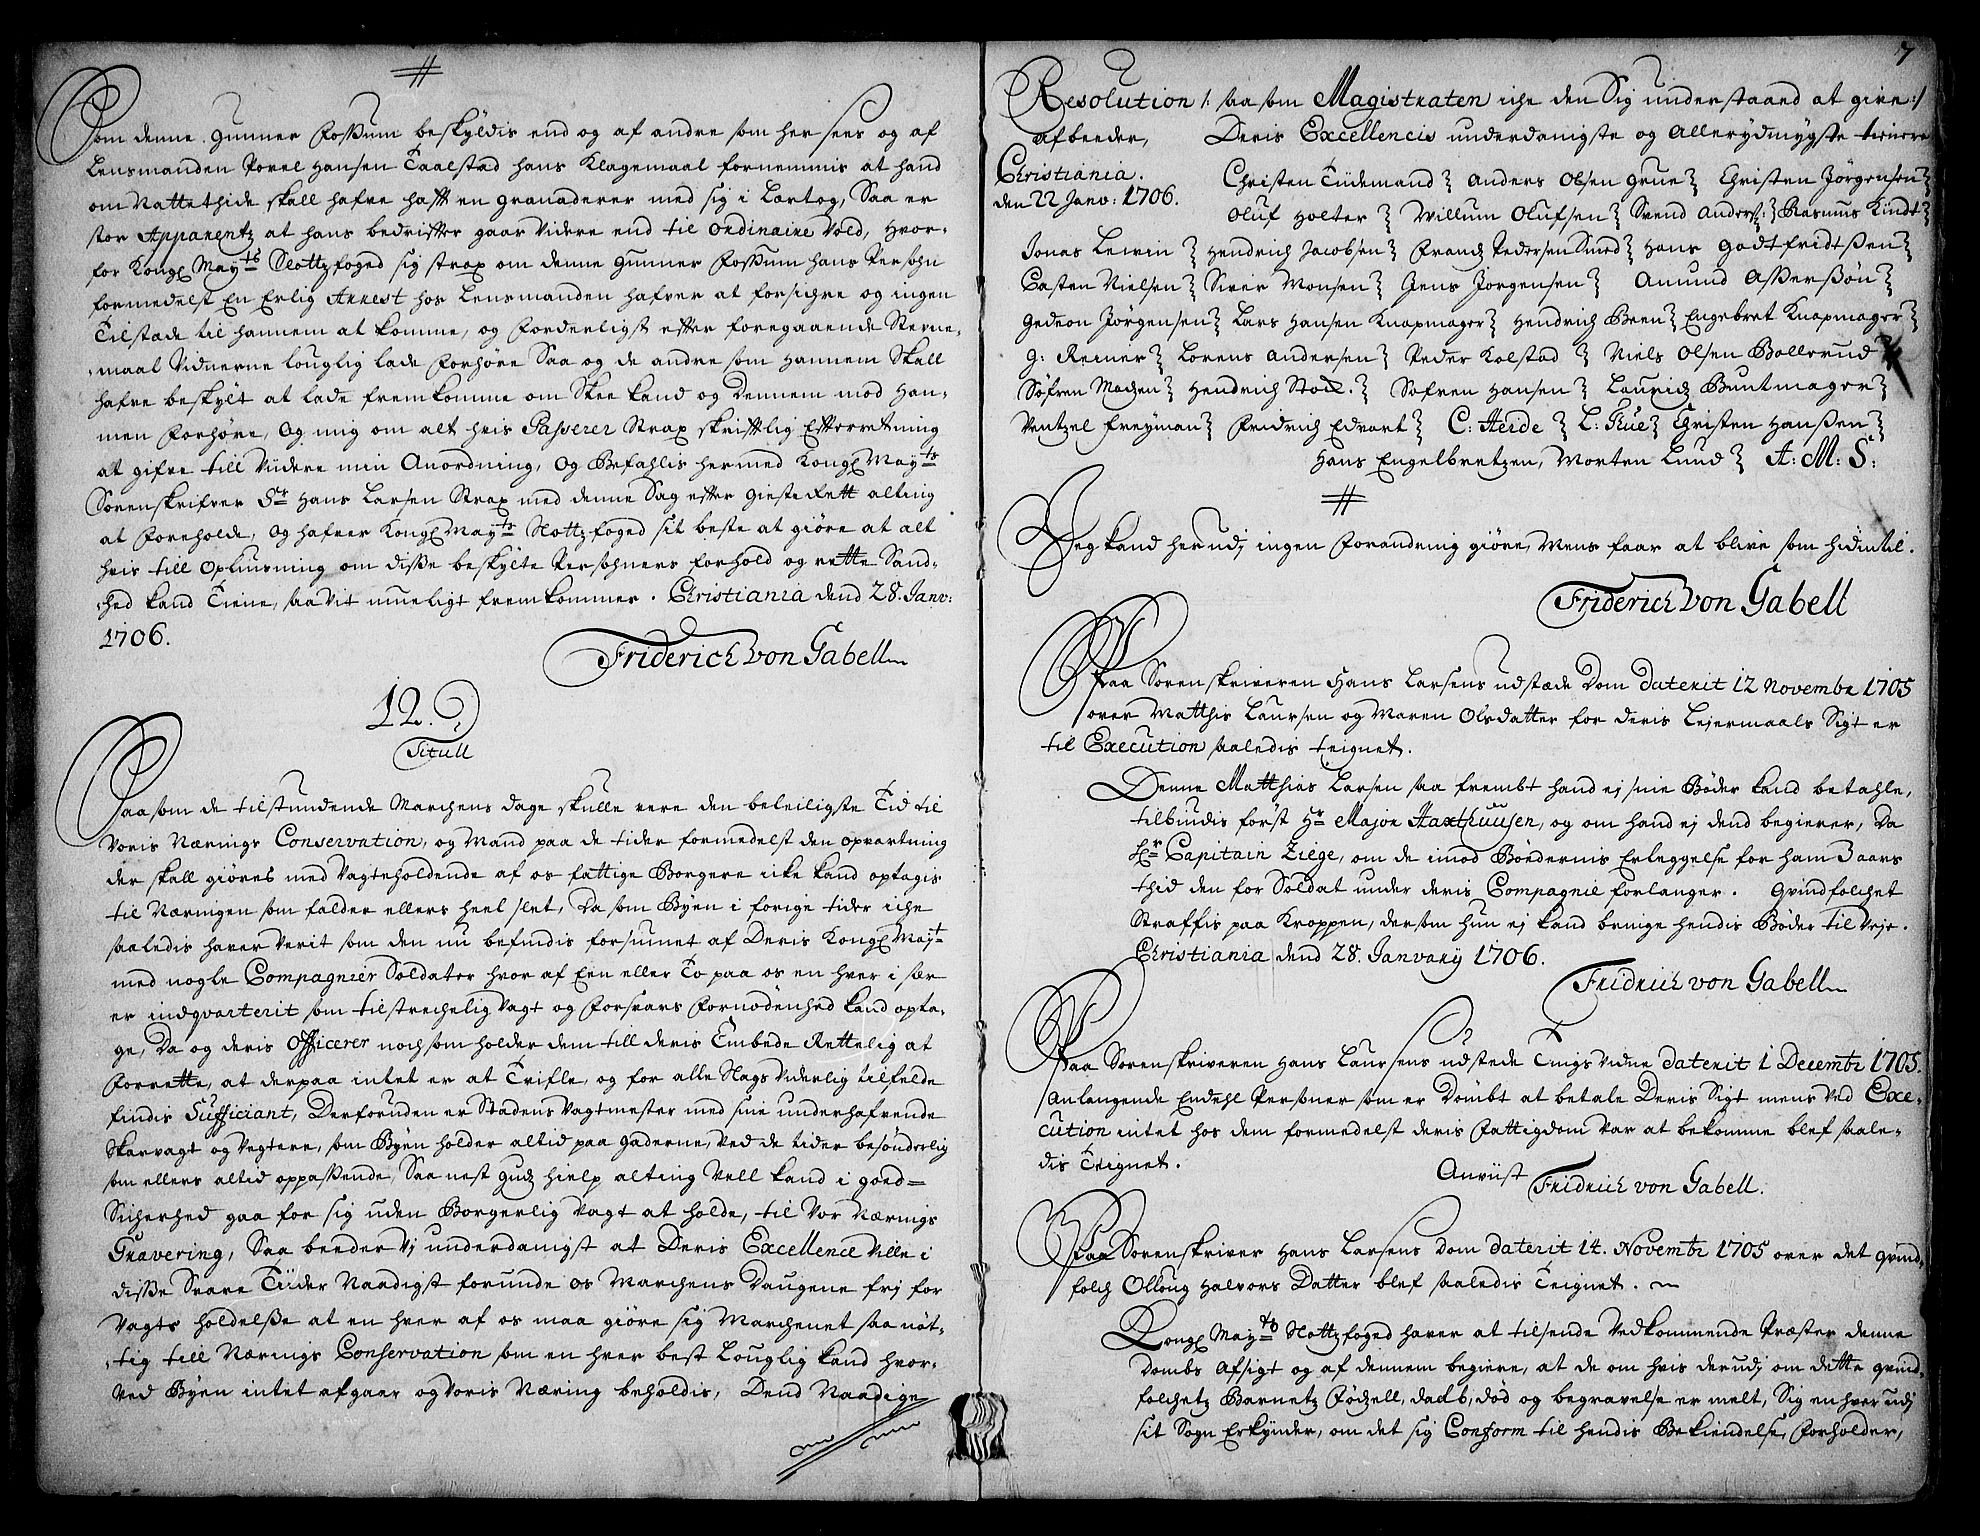 Som denne Gunner Fossum beskyldis end og af andre som her sees og af
Lensmanden Povel Hansen Taalstad hans Klagemaal fornemmis at hand
om Nattethide skall hafve hafft en Granaderer med sig i Lærtog, Saa er
stor Apparentz at hans bedriffter gaar videre end til ordinaire Vold, Hvor-
for Kongl May:ts Slottzfoged sig strax om denne Gunner Fossum hans Persohn
formedelst En Erlig Arrest hos Lensmanden hafver at forsichre og ingen
Tilstæde til hannem at komme, og forderligst efter foregaaende Stefne-
maal Vidnerne louglig lade forhøre Saa og de andre som Hannem Skall
hafve beskylt at lade fremkomme om Skee kand og Dennem mod Han-
nem Forhøre, Og mig om alt hvis Passerer Strax skrifftlig Effterretning
at gifve till Viidere min Anordning, Og Befahlis hermed Kongl May:ts
Sorenskrifver Sr Hans Larsen Strax med denne Sag efter Gieste Rett alting
at Foreholde, Og hafver Kongl May:ts Slottzfoged sit beste at giøre at alt
hvis till Opliusning om disse beskylte Persohners forhold og rette Sand-
hed kand Tiene, saavit mueligt fremkommer. Christiania dend 28. Janv:
1706.
Friderich von Gabell
12.
Titull
Saasom de tilstundende Marchens dage skulle vere den beleiligste Tid til
Voris Nærings Conservation, og Mand paa de tider formedelst den opvartning
der skall giøres med Vagteholdende af os fattige Borgere icke kand optagis
til Næringen som falder ellers heel slet, Da som Byen i forige tider iche
saaledis haver Verit som den nu befindis forsiunet af Deris Kongl May:t
med nogle Compagnier Soldater hvor af Een eller To paa os en hver i sær
er indqvarterit som tilstrechelig Vagt og Forsvars Fornødenhed kand opta-
ge, Da og deris Officerer nochsom holder dem till deris Embede Rettelig at
Forrette, at derpaa intet er at Trifle, og for alle Slags Viderlig tilfelde
findis Sufficiant, Derforuden er Stadens Vagtmester med sine underhafvende
Skarvagt og Vegtere, som Byen holder altid paa Gaderne, Ved de tider besønderlig
som ellers altid oppassende, Saa nest Gudz hielp alting Vell kand i goed=
Sicherhed gaa for sig uden Borgerlig Vagt at holde, til Vor Nærings
Travering, Saa beeder Vj underdanigst at Deris Excellence Ville i
disse Svare Tiider Naadigst forunde os Marchens Daugene frj for
Vagts holdelsse at en hver af os maa giøre sig Marchenet saa nøt-
tig till Nærings Conservation som en hver best Louglig kand hvor-
ved Byen intet afgaar og Voris Næring beholdis, Dend Naadige
7
Resolution /: saasom Magistraten iche den Sig understaaed at give :/
afbeeder, Deris Excellencis underdanigste og Allerydmygste tienere
Christiania.
den 22 Janv: 1706.
Christen Tüdemand } Anders Olsen Grue } Christen Jörgensen }
Oluf Holter } Willum Olufsen } Svend Anders: } Rasmus Kindt }
Jonas Lewin } Hendrich Jacobsen } Frandz Pedersen Smed } Hans Godtfridtssen }
Casten Nielsen } Siver Monsen } Jens Jørgensen } Amund Asserssøn }
Gedeon Jörgensen } Lars Hansen Knapmager } Hendrich Been } Engebret Knapmager }
G: Reiner } Lorens Andersen } Peder Kolstad } Niels Olsen Bollerud }
Söfren Madsen } Hendrich Stoed. } Sofren Hansen } Lauridz Buntmager }
Ventzel Freyman } Fridrich Edvart } C: Herde } L: Grue } Christen Hanssen }
Hans Engelbretzen, Morten Lund } A: M: S:
Jeg kand herudj ingen Forandring giøre, Mens faar at blive som hidintil.
Friderich von Gabell
Paa Sorenskriveren Hans Larsens udstæde Dom daterit 12 Novembr 1705
over Matthis Laursen og Maren Olsdatter for deris Lejermaals Sigt er
til Execution saaledis teignet.
Denne Matthias Larsen saa frembt hand ej sine Bøder kand betahle,
tilbiudis først Hr Major Haxthuusen, og om hand ej dend begierer, Da
Hr Capitain Ziege, om de imod Bödernis Erleggelse for ham 3 aars
thid den for Soldat under deris Compagnie forlanger. Qvindfolchet
Straffis paa Kroppen, dersom hun ej kand bringe hendis Bøder til Veje.
Christiania dend 28. January 1706.
Fridrich von Gabell
Paa Sorenskriveren Hans Laursens udstede Tings Vidne daterit 1 Decembr 1705.
Anlangende Endehl Personer som er Dömbt at betale Deris Sigt mens ved Exe-
cution intet hos dem formedelst deris Fattigdom var at bekomme blef saale-
dis Teignet.
Anviist Fridrich von Gabell.
Paa Sorenskriver Hans Larsens Dom daterit 14. Novembr 1705 over det qvind-
folch Olloug Halvors Datter blef saaledis Teignet.
Kongl May:ts Slottzfoged haver at tilsende Vedkommende Præster denne
dombs Afsigt og af dennem begiere, at de om hvis derudj om dette qvind-
folchetz Barnetz Fødzell, daab, død og begravelse er melt, Sig en hver udj
sit Sogn Erkynder, om det sig Conform til hendis Bekiendelse, Forholder,